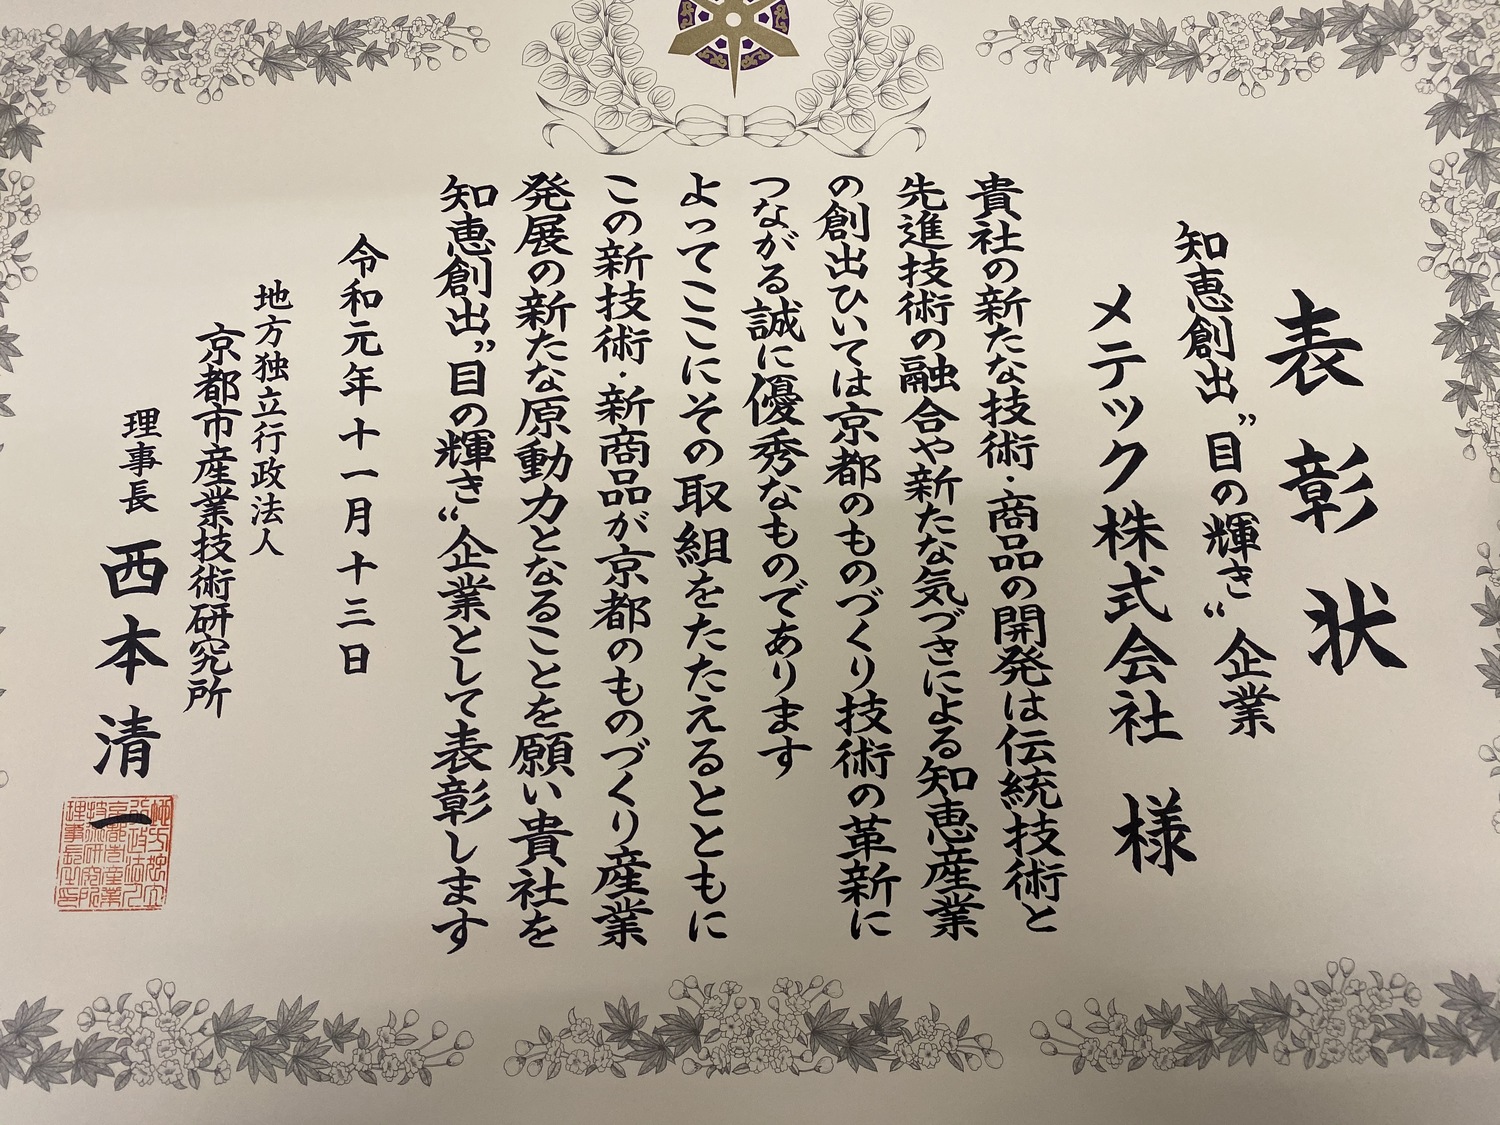 表彰状
知恵創出”目の輝き“企業
メテック株式会社 様
貴社の新たな技術・商品の開発は伝統技術と
先進技術の融合や新たな気づきによる知恵産業
の創出ひいては京都のものづくり技術の革新に
つながる誠に優秀なものであります
よってここにその取組をたたえるとともに
この新技術・新商品が京都のものづくり産業
発展の新たな原動力となることを願い貴社を
知恵創出”目の輝き“企業として表彰します
令和元年十一月十三日
地方独立行政法人
京都市産業技術研究所
理事長 西本清一
地方独立
行政法人
京都市産業
技術研究所
理事長之印